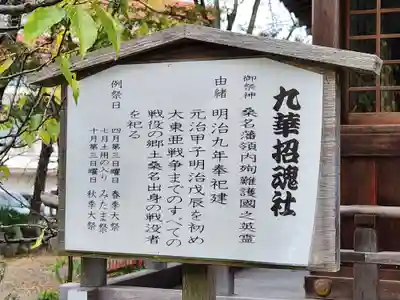 九華招魂社
御祭神 桑名藩領内殉難護国之英霊
由緒 明治九年奉祀建
元治甲子明治戊辰を初め
大東亜戦争までのすべての
戦役の郷土桑名出身の戦没者
を祀る
例祭日 四月第三日曜日 春季大祭
七月土用の入り みたま祭
十月第三日曜日 秋季大祭